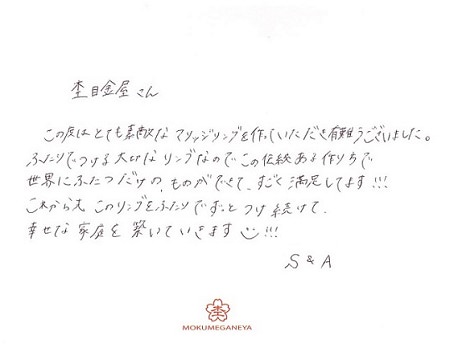 杢目金屋さん
この度はとても素敵なマリッジリングを作っていただき有難うございました。
ふたりでつける大切なリングなのでこの伝統ある作り方で
世界にふたつだけの、ものができて、すごく満足してます!!!
これからも このリングをふたりでずっとつけ続けて、
幸せな家庭を築いていきます!!!
S & A
杢
MOKUMEGANEYA